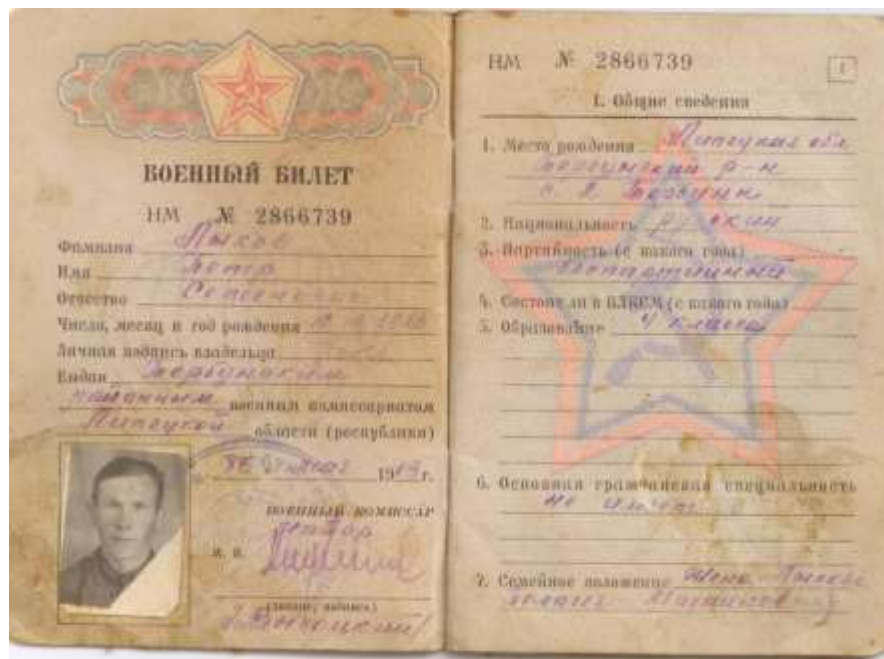 ВОЕННЫЙ БИЛЕТ
НМ № 2866739
Фамилия Лыков
Имя Петр
Отчество Семенович
Число, месяц и год рождения
Личная подпись владельца
Выдан Тербунским
районным военным комиссариатом
Липецкой области (республики)
19 г.
ВОЕННЫЙ КОМИССАР
М. П.
(звание, подпись)
НМ № 2866739
1
I. Общие сведения
1. Место рождения Липецкая обл
Тербунский р-н
с. 2 Тербуны
2. Национальность русский
3. Партийность (с какого года)
беспартийный
4. Состоял ли в ВЛКСМ (с какого года)
5. Образование 4 класса
6. Основная гражданская специальность
не имеет
7. Семейное положение жена Лыкова